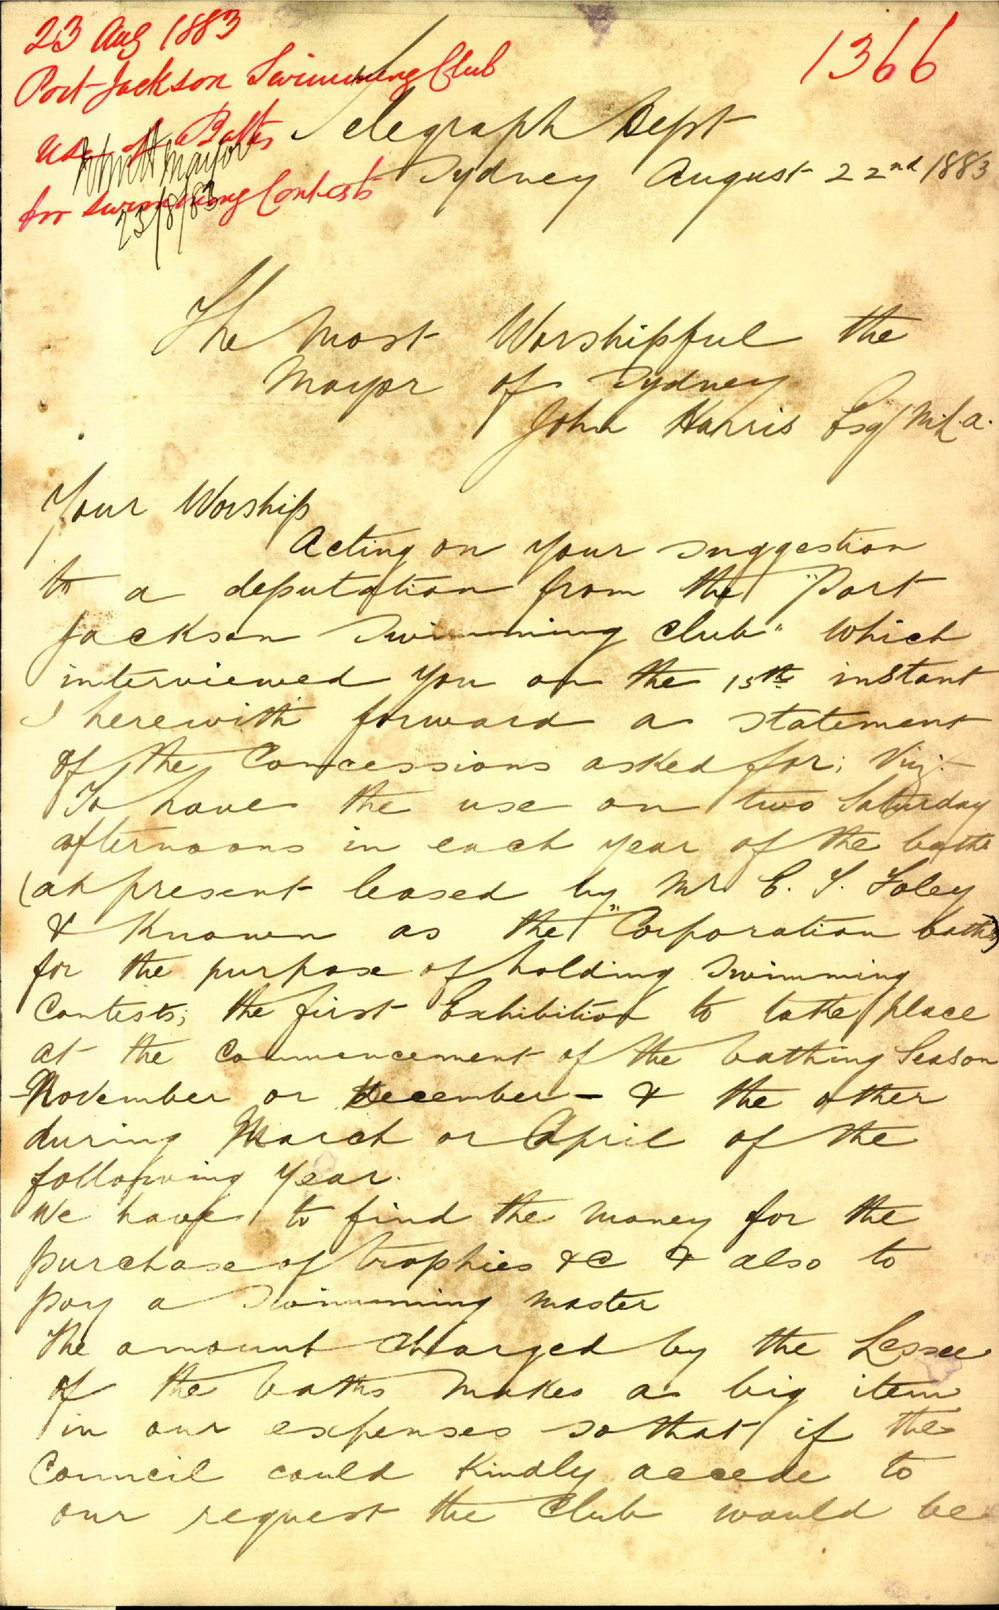 23 Aug 1883
Port Jackson Swimming Club
use of Baths
for swimming Contests
1366
Mayor
23/8/83
Telegraph Dept
Sydney August 22nd 1883
The Most Worshipful the
Mayor of Sydney
John Harris Esq M.L.A.
Your Worship
Acting on your suggestion
to a deputation from the "Port
Jackson Swimming Club" which
interviewed you on the 15th instant
I herewith forward a statement
of the Concessions asked for; Viz:-
To have the use on two Saturday
afternoons in each year of the baths
(at present leased by Mr C. S. Foley
& Known as the "Corporation baths")
for the purpose of holding swimming
Contests; the first Exhibition to take place
at the commencement of the bathing Season
-November or December - & the other
during March or April of the
following year.
We have to find the money for the
purchase of trophies &C & also to
pay a Swimming master
The amount charged by the Lessee
of the baths makes a big item
in our expenses so that if the
Council could Kindly accede to
our request the Club would be